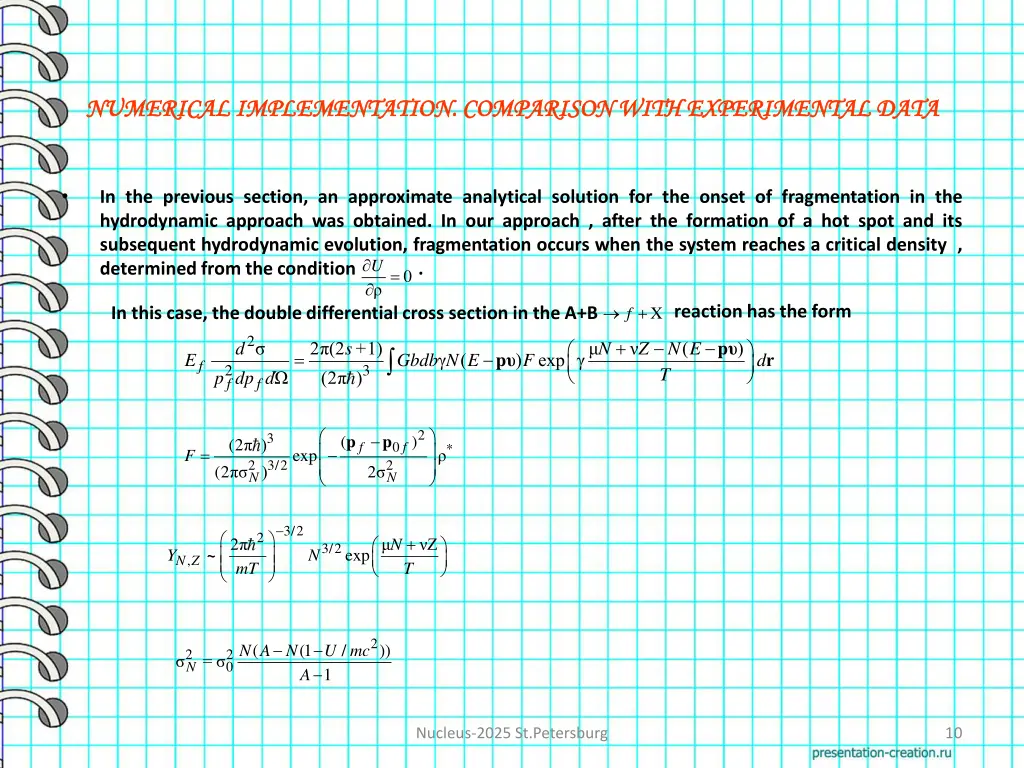 NUMERICAL IMPLEMENTATION. COMPARISON WITH EXPERIMENTAL DATA
• In the previous section, an approximate analytical solution for the onset of fragmentation in the
hydrodynamic approach was obtained. In our approach , after the formation of a hot spot and its
subsequent hydrodynamic evolution, fragmentation occurs when the system reaches a critical density ,
determined from the condition ∂U/∂ρ = 0 .
In this case, the double differential cross section in the A+B → f + X reaction has the form
E_f d²σ/(p_f² dp_f dΩ) = 2π(2s+1)/(2πħ)³ ∫ GbdbγN(E − pυ)F exp(γ (μN + νZ − N(E − pυ))/T) dr
F = (2πħ)³/(2πσ_N²)^{3/2} exp(−(p_f − p_{0f})²/(2σ_N²)) ρ*
Y_{N,Z} ~ (2πħ²/mT)^{−3/2} N^{3/2} exp((μN + νZ)/T)
σ_N² = σ_0² N(A − N(1 − U / mc²))/(A − 1)
Nucleus-2025 St.Petersburg 10
presentation-creation.ru